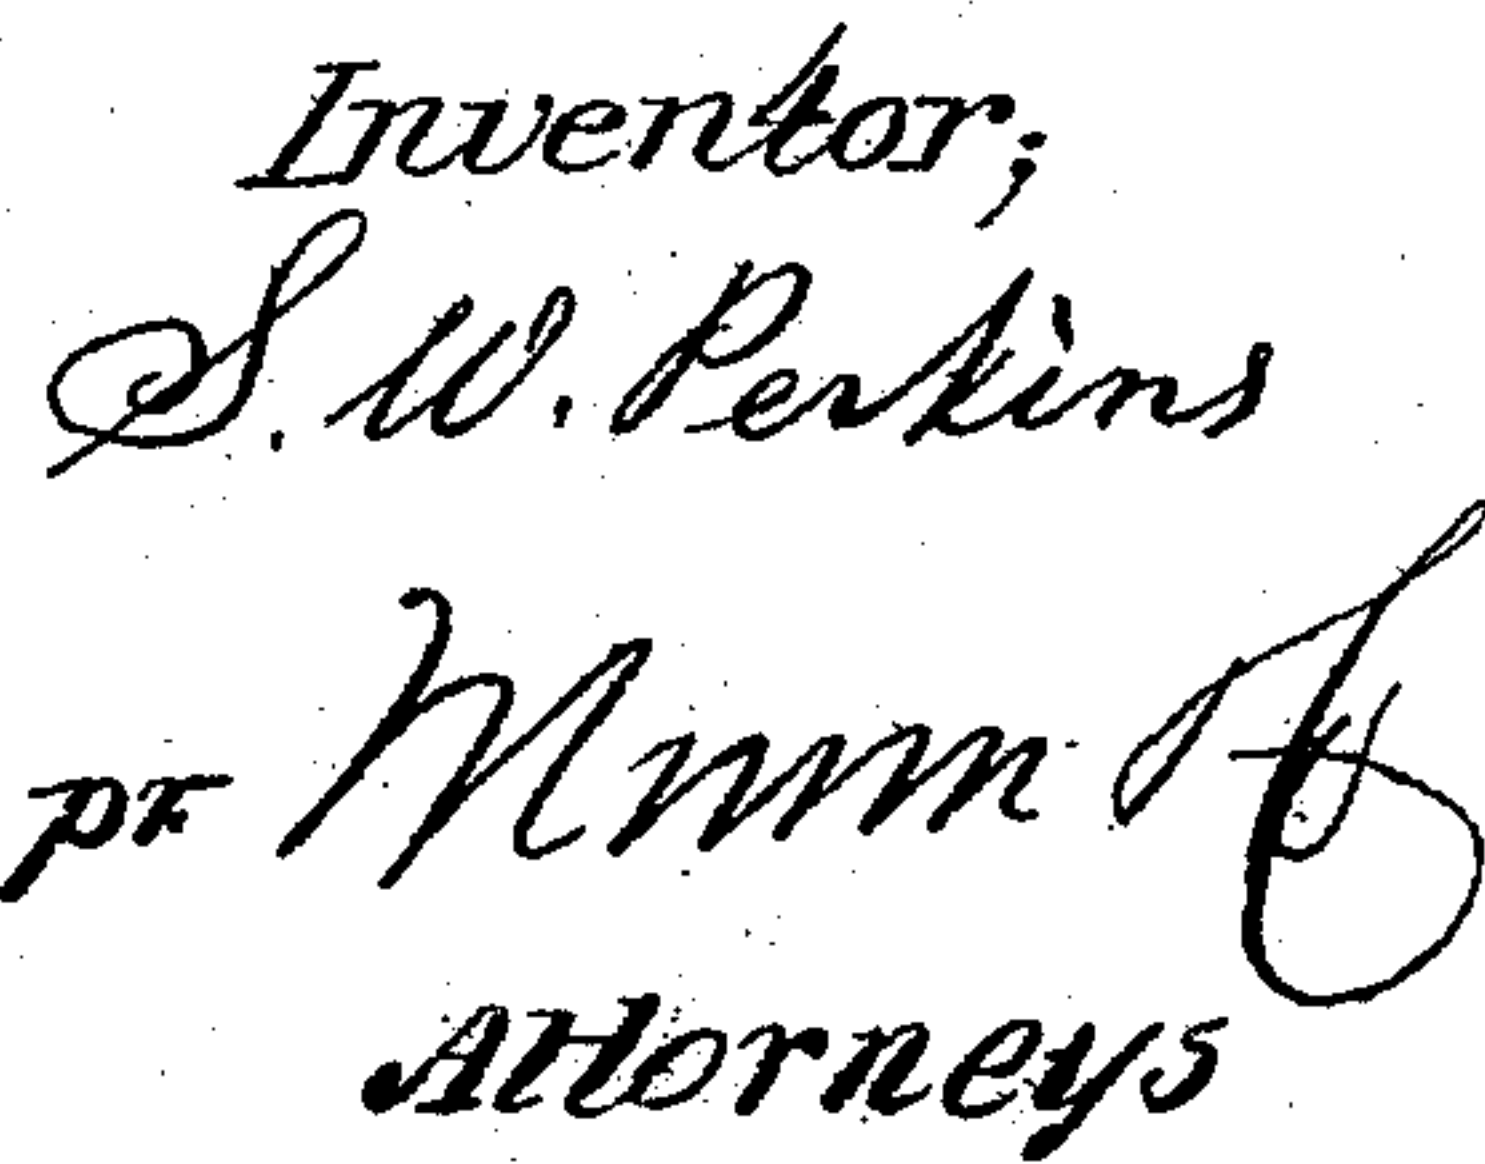 Inventor;
S. W. Perkins
per Munn & Co
Attorneys